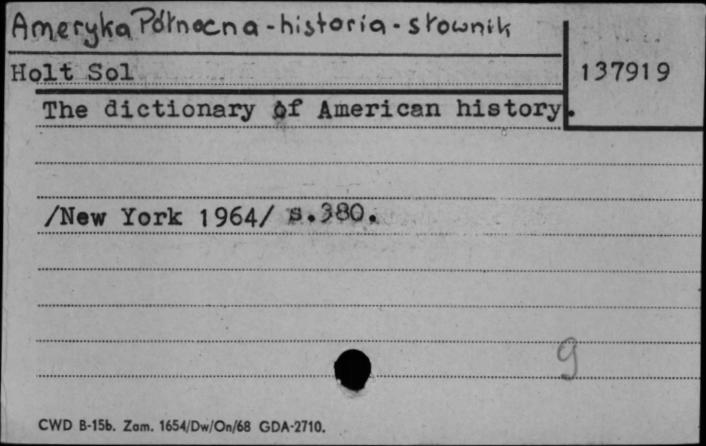 Ameryka Północna - historia - słownik
Holt Sol
137919
The dictionary of American history.
/New York 1964/ s.380.
9
CWD B-15b. Zam. 1654/Dw/On/68 GDA-2710.